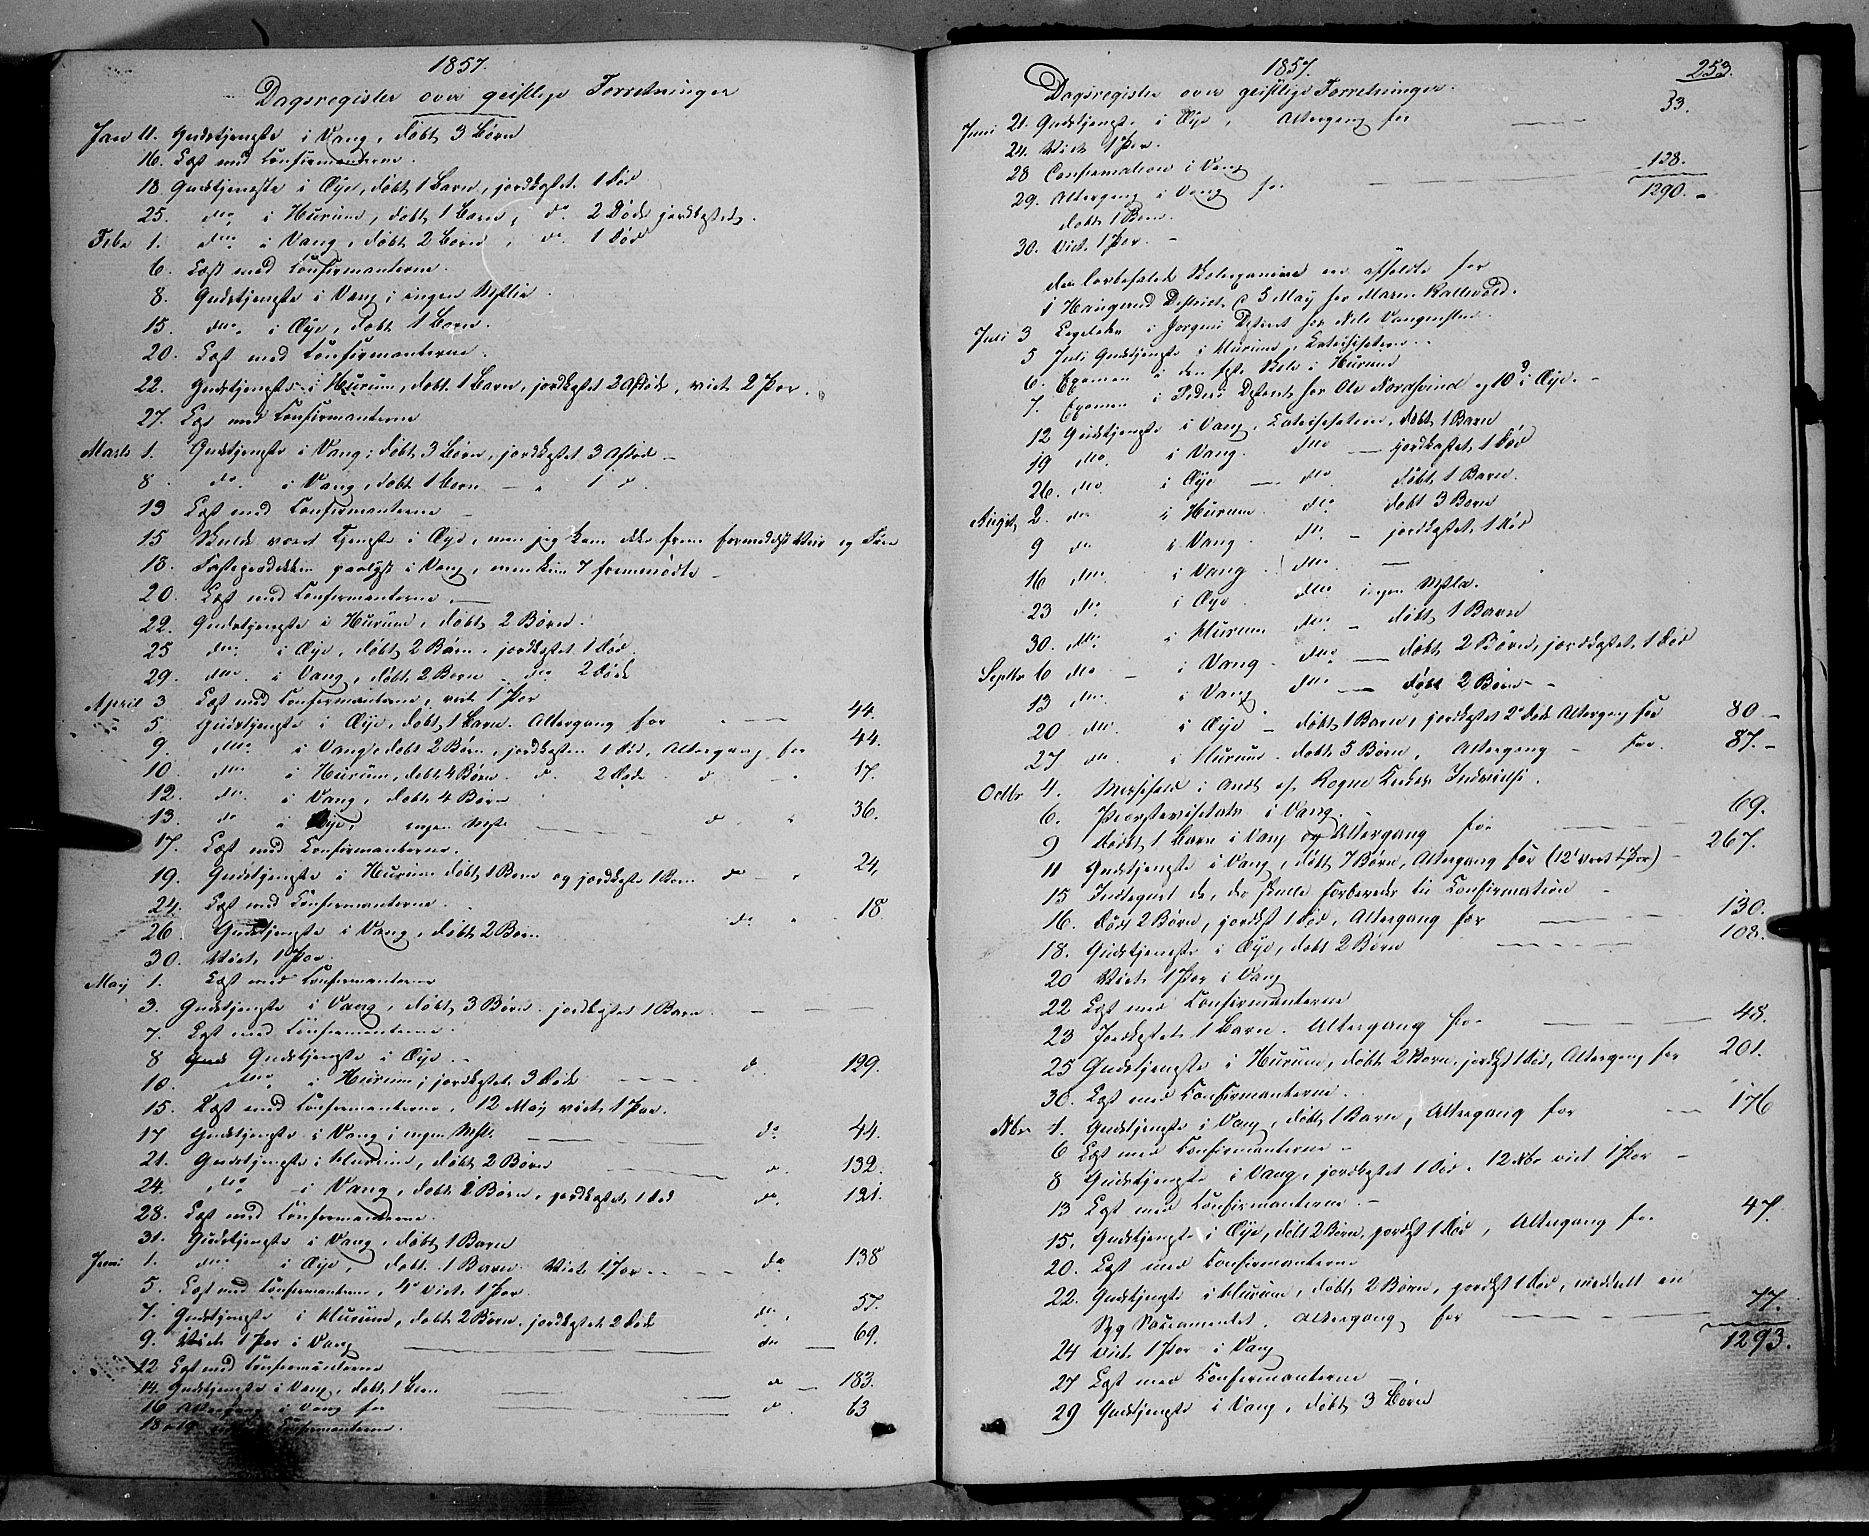 1857.
Dagsregister over geistlige Forretninger
Jan 11. Gudstjenste i Vang, døbt 3 Børn
16. Læst med Confirmanterne.
18 Gudstjenste i Øye, døbt 1 Barn, jordkastet 1 Død
25. do i Hurum, døbt 1 Barn, do 2 Døde jordkastet.
Febr 1. do i Vang, døbt 2 Børn, do 1 Død
6. Læst med Confirmanterne.
8. Gudstjenste i Vang, ingen
15. do i Øye, døbt 1 Barn.
20. Læst med Confirmanterne.
22. Gudstjenste i Hurum, døbt 1 Barn, jordkastet 2 Afdøde, viet 2 Par.
27. Læst med Confirmanterne
Marts 1. Gudstjenste i Vang, døbt 3 Børn, jordkastet 3 Afdøde
8 do i Vang, døbt 1 Barn — 1 d.
13 Læst med Confirmanterne
15 Skulde været Tjenste i Øye, men jeg kom ikke frem formedelst Veir og Føre
18. i Vang, men kun 7 fremmødte
20. Læst med Confirmanterne.
22. Gudstjenste i Hurum, døbt 2 Børn.
25 do i Øye, døbt 2 Børn, jordkastet 1 Død.
29. do i Vang, døbt 2 Børn do 2 Døde
April 3 Læst med Confirmanterne, viet 1 Par
5 Gudstjenste i Øye, døbt 1 Barn. Altergang for 44.
9. do i Vang, døbt 2 Børn, jordkastet 1 Død, Altergang for 44.
10. do i Hurum, døbt 4 Børn do 2 Døde do 17.
12. do i Vang, døbt 4 Børn
13. do i Øye, ingen do 36.
17. Læst med Confirmanterne.
19. Gudstjenste i Hurum døbt 1 Barn og jordkastet 1 Barn do 24.
24. Læst med Confirmanterne.
26. Gudstjenste i Vang, døbt 2 Børn do 18.
30. Viet 1 Par.
May 1. Læst med Confirmanterne
3. Gudstjenste i Vang, døbt 3 Børn, jordkastet 1 Barn
7. Læst med Confirmanterne.
8 Gudstjenste i Øye.
10. do i Hurum, jordkastet 3 Døde d. 129.
15. Læst med Confirmanterne, 12 May viet 1 Par.
17 Gudstjenste i Vang, ingen do 44.
21. Gudstjenste i Hurum, døbt 2 Børn d. 132.
24. do i Vang, døbt 2 Børn, jordkastet 1 Død do 121.
28. Læst med Confirmanterne.
31. Gudstjenste i Vang, døbt 1 Barn
Juni 1. do i Øye, døbt 1 Barn. Viet 1 Par do 138
5. Læst med Confirmanterne, 4d viet 1 Par.
7. Gudstjenste i Hurum, døbt 2 Børn, jordkastet 2 Døde do 57.
9. Viet 1 Par i Vang do 69.
12 Læst med Confirmanterne
14. Gudstjenste i Vang, døbt 1 Barn d 183.
16 Altergang i Vang for d. 63
18 19 Confirmanterne.
1857. 253.
Dagsregister over geistlige Forretninger.
Juni 21. Gudstjenste i Øye, Altergang for 33.
24. Viet 1 Par.
28 Confirmation i Vang
29. Altergang i Vang for 128.
1290.
døbt 1 Barn.
30. Viet 1 Par.
Skoleexamina ere afholdte for
i Haugerud District, 5 May for Maren Kallevold.
Juli 3 i District for Nils
5 Juli Gudstjenste i Hurum, Catechisation.
6. Examen i den Skole i Hurum
7. Examen i District for Ole Nordsveen og 10d i Øye.
12 Gudstjenste i Vang, Catechisation, døbt 1 Barn
19 do. i Vang. do — jordkastet 1 Død
26. do i Øye — do døbt 1 Barn.
August 2. do i Hurum do døbt 3 Børn
9 do i Vang. do — jordkastet 1 Død
16 do i Vang do —
23 do. i Øye. do ingen
30. do. i Hurum do — døbt 1 Barn
Septbr 6 do — i Vang. do — døbt 2 Børn, jordkastet 1 Død
13 do. i Vang do — døbt 2 Børn
20 do. i Øye — døbt 1 Barn, jordkastet 2 Døde Altergang for 80
27 do. i Hurum. døbt 5 Børn, Altergang — for 87.
Octbr 4. Messefald i
6. Provstevisitats i Vang.
9 Døbt 1 Barn i Vang og Altergang for 69.
11 Gudstjenste i Vang, døbt 7 Børn, Altergang for (12d viet 1 Par) 267.
15 Indtegnet de, der skulle forberedes til Confirmation
16. Døbt 2 Børn, jordkst 1 Død, Altergang for 130.
18. Gudstjenste i Øye, døbt 2 Børn 108.
20 Viet 1 Par i Vang
22 Læst med Confirmanterne
23 Jordkastet 1 Barn. Altergang for 48.
25 Gudstjenste i Hurum, døbt 2 Børn, jordkst 1 Død, Altergang for 201.
30. Læst med Confirmanterne.
Nbr 1. Gudstjenste i Vang, døbt 1 Barn, Altergang for 176
6 Læst med Confirmanterne
8 Gudstjenste i Vang, jordkastet 1 Død. 12 Nbr viet 1 Par
13 Læst med Confirmanterne
15. Gudstjenste i Øye, døbt 2 Børn, jordkst 1 Død, Altergang for 47.
20. Læst med Confirmanterne
22. Gudstjenste i Hurum, døbt 2 Børn, jordkst 1 Død, meddelt en
Syg Sacramentet. Altergang for 77.
24 Viet 1 Par i Vang 1293.
27 Læst med Confirmanterne
29 Gudstjenste i Vang, døbt 3 Børn